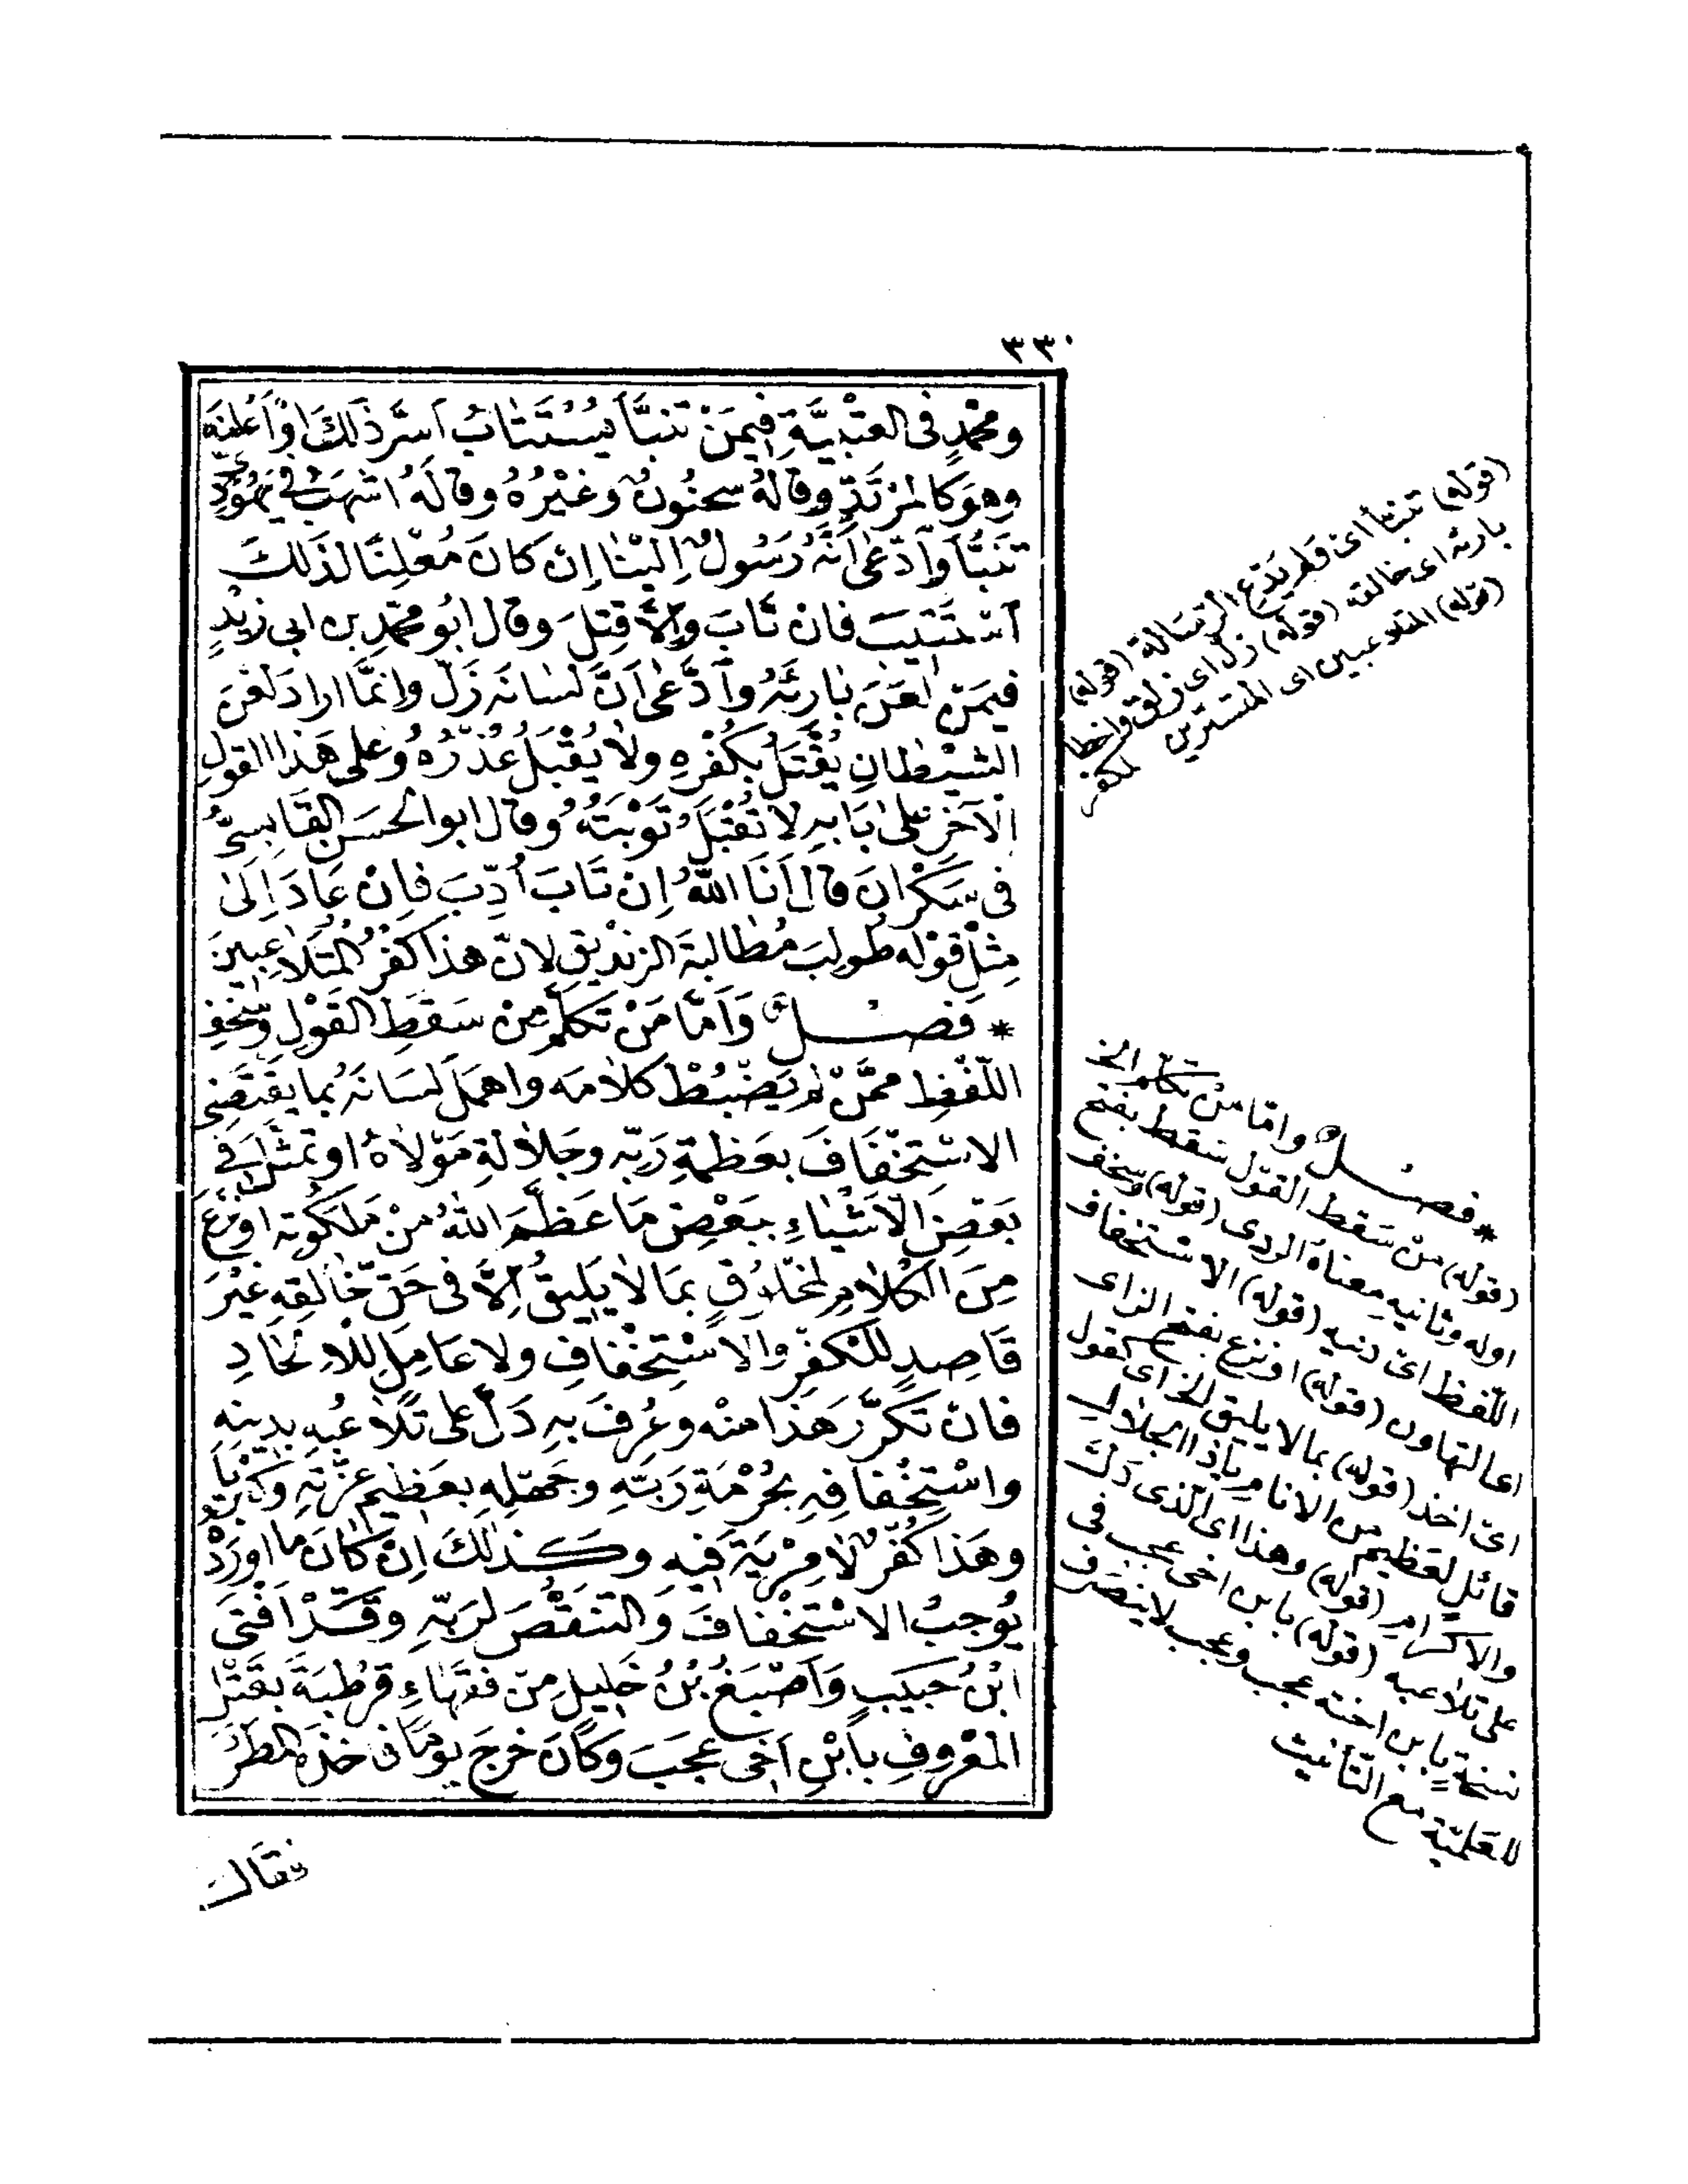 ٣٣٠
ومحمد فى العتبية فيمن تنبأ يستتاب أسر ذلك او أعلنه
وهو كالمرتد وقاله سحنون وغيره وقاله اشهب فى يهودى
تنبأ وادعى أنه رسول إلينا إن كان معلنا لذلك
استتيب فان تاب وإلا قتل وقال ابو محمد بن ابى زيد
فيمن لعن بارئه وادعى أن لسانه زل وانما اراد لعن
الشيطان يقتل بكفره ولا يقبل عذره وعلى هذا القول
الآخر على بابه لا تقبل توبته وقال ابو الحسن القابسى
فى سكران قال أنا الله إن تاب أدب فإن عاد إلى
مثل قوله طولب مطالبة الزنديق لان هذا كفر المتلاعبين
* فصل وأما من تكلم من سقط القول وسخف
اللفظ ممن لم يضبط كلامه واهمل لسانه بما يقتضى
الاستخفاف بعظمة ربه وجلالة مولاه او تمثل فى
بعض الأشياء ببعض ما عظم الله من ملكوته او نزع
من الكلام لمخلوق بما لا يليق إلا فى حق خالقه غير
قاصد للكفر والاستخفاف ولا عامد للالحاد
فان تكرر هذا منه وعرف به دل على تلاعبه بدينه
واستخفافه بحرمة ربه وجهله بعظيم عزته وكبريائه
وهذا كفر لا مرية فيه وكذلك إن كان ما اورده
يوجب الاستخفاف والتنقص لربه وقد أفتى
ابن حبيب وأصبغ بن خليل من فقهاء قرطبة بقتل
المعروف بابن أخى عجب وكان خرج يوما فاخذه المطر
فقال
(قوله) تنبأ اى فلم يدع الرسالة (قوله)
بارئه اى خالقه (قوله) زل اى زلق واخطا
(قوله) المتلاعبين اى المتسترين لكفر
* فصل واما من تكلم الخ
(قوله) من سقط القول سقط بفتح
اوله وثانيه معناه الردى (قوله) وسخف
اللفظ اى دنيه (قوله) الاستخفاف
اى التهاون (قوله) او نزع بفتح الزاى
اى اخذ (قوله) بما لا يليق الخ اى كقول
قائل لعظيم من الانام ياذا الجلال
والاكرام (قوله) وهذا اى الذى دلت
على تلاعبه (قوله) بابن اخى عجب فى
نسخة بابن اخت عجب وعجب لا ينصرف
للعلمية مع التأنيث